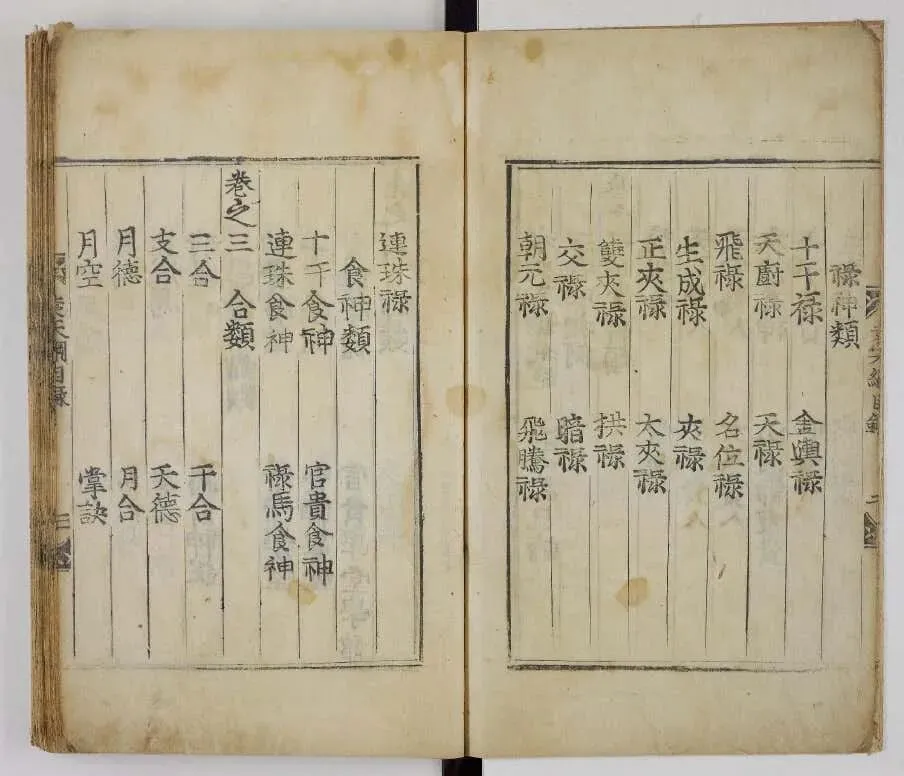 祿神類
十干祿 金輿祿
天廚祿 天祿
飛祿 名位祿
生成祿 夾祿
正夾祿 太夾祿
雙夾祿 拱祿
交祿 暗祿
朝元祿 飛騰祿
連珠祿
食神類
十干食神 官貴食神
連珠食神 祿馬食神
卷之三 合類
三合 干合
支合 天德
月德 月合
月空 掌訣